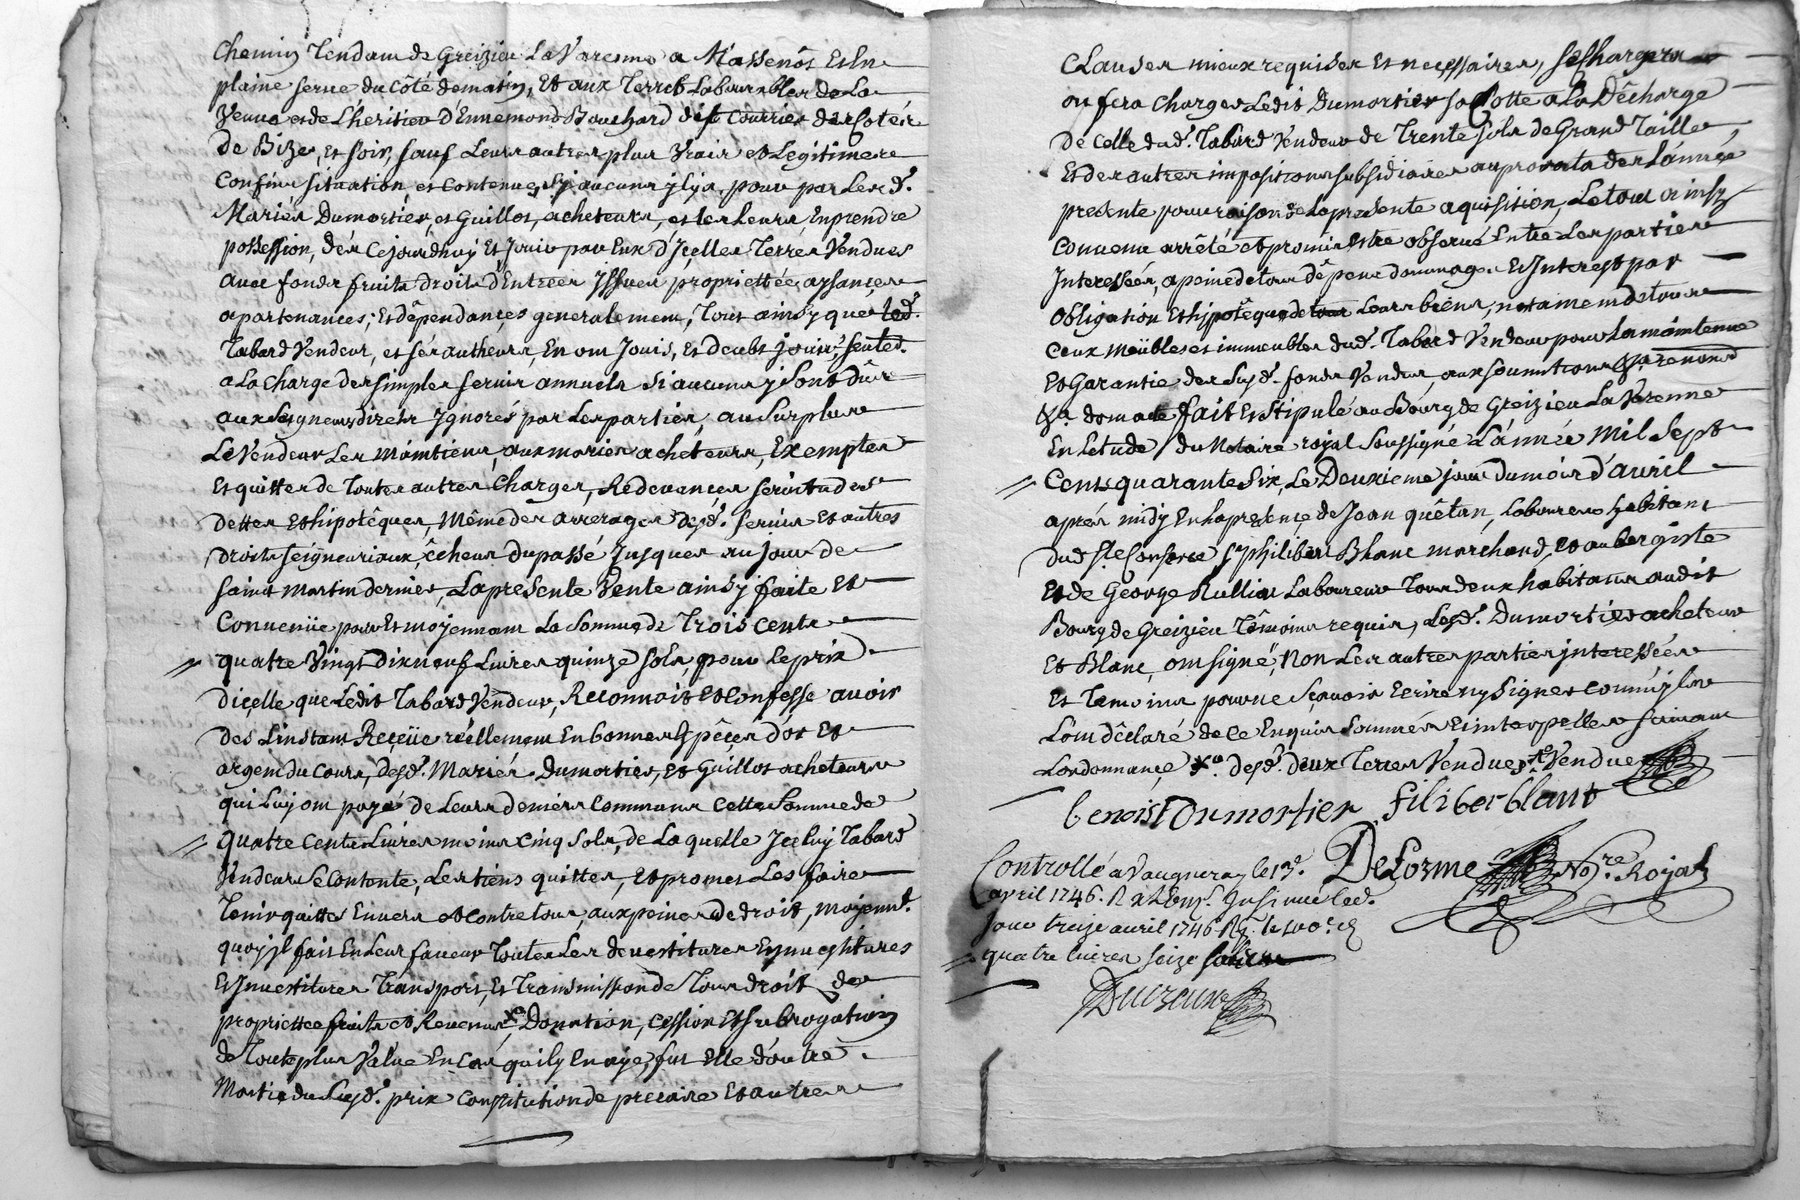 Chemin Tendant de Greizieu La Varenne a Massenôt Et En
plaine serve du Côté de matin, Et aux Terres Labourables de La
Veuve et de L'heritier d'Ennemond Bouchard dit Courrier des Cotés
De Bize, et soir, sauf Leurs autres plus Vrais et Legitimes
Confins situation, et Contenue, sy aucuns y l y a, pour par Lesd.
Mariés Dumortier, et Guillot, acheteurs, et les Leurs, En prendre
possession, dés Cejourdhuy Et Jouir par Eux d'Jcelles Terres Vendues
avec fonds fruits droits d'Entrées Jssues propriettées, aysances
apartenances, Et dêpendances generalement, Tout ainsy que led.
Tabard Vendeur, et ses autheurs, En ont Jouis, Et deubt jouir,
a La Charge des simples servis annuels si aucuns y sont dûs
aux Seigneurs directs Jgnorés par Les parties, au Surplus
Le Vendeur Les maintiens, auxd mariés acheteurs, Exemptes
Et quittes de Toutes autres Charges, Redevances servitudes
dettes Et hipotêques, Même des arrerages desd. servis Et autres
droits seigneuriaux, êcheus du passé Jusques au jour de
saint Martin dernier, La presente Vente ainsy faite Et
Convenüe pour Et moyennant La Somme de Trois Cents
quatre Vingt Dixneuf Livres quinze sols, pour Le prix
dicelle que Ledit Tabard Vendeur, Reconnoit et Confesse avoir
des L'instant Reçeüe réellement En bonnes Espêces d'or Et
argent du Cours, desd. Mariés Dumortier, Et Guillot acheteurs
qui Luy ont payé de Leurs deniers Communs Cette Somme de
quatre Cents Livres moins Cinq Sols, de Laquelle Jceluy Tabard
Vendeur Se Contente, Les tiens quittes, Et promet Les faire
Tenir quittes Envers Et Contre tous, aux peines de droit, moyennt.
quoy jl fait En Leur faveur Toutes Les devestitures
Et Jnvestitures Transport, Et Transmission de Tous droits de
propriettes fruits et Revenus, Donation, cession Et subrogation
de Toute plus Value En Cas quil y En aye, fut Elle d'outre
Moitié du Susd. prix Constitution de precaire Et autres
Clauses mieux requises Et neçessaires, Se Chargera
ou fera Charger Ledit Dumortier sa Cotte a La Décharge
De Celle dud. Tabard Vendeur de Trente sols de Grand Taille,
Et des autres impositions subsidiaires au prorata de L'année
presente pour raison de La presente aquisition, Le tout ainsy
Convenu arrêté et promis Estre observé Entre Les parties
Jnteressées, a peine de tous dêpens dommages Et Jnterest par
Obligation Et hipotêque de tous Leurs biens, notamment de tous
Ceux meübles et immeubles dud. Tabard Vendeur pour La maintenue
Et Garantie des Susd. fonds Vendus, aux soumitions renond
dom acte fait Et Stipulé au Bourg de Greizieu La Varenne
En L'etude du Notaire royal Soussigné L'année Mil Sept
Cents quarante Six, Le Deuxieme jour du mois d'avril
aprés midy En La presençe de Jean quêtan, Laboureur habitant
dud. St. Consorce Sr. philibert Blanc marchand, et aubergiste
Et de George Rullion Laboureur Tous deux habitants audit
Bourg de Greizieu Têmoins requis, Lesd. Dumortier acheteur
Et Blanc, ont signé, Non Les autres parties jnteressées
Et Temoins pour ne Sçavoir Ecrire ny signer comm'jls
L'ont dêclaré de Ce Enquis Sommés Et interpellés Suivant
L'ordonnançe desd. deux Terres Vendues Vendue
benoist Dumortier filiber blanc
DeLorme Nore. Royal
Controllé a Vaugneray le 13e.
avril 1746. Jnsinué led.
Jour treize avril 1746
quatre livres seize sols